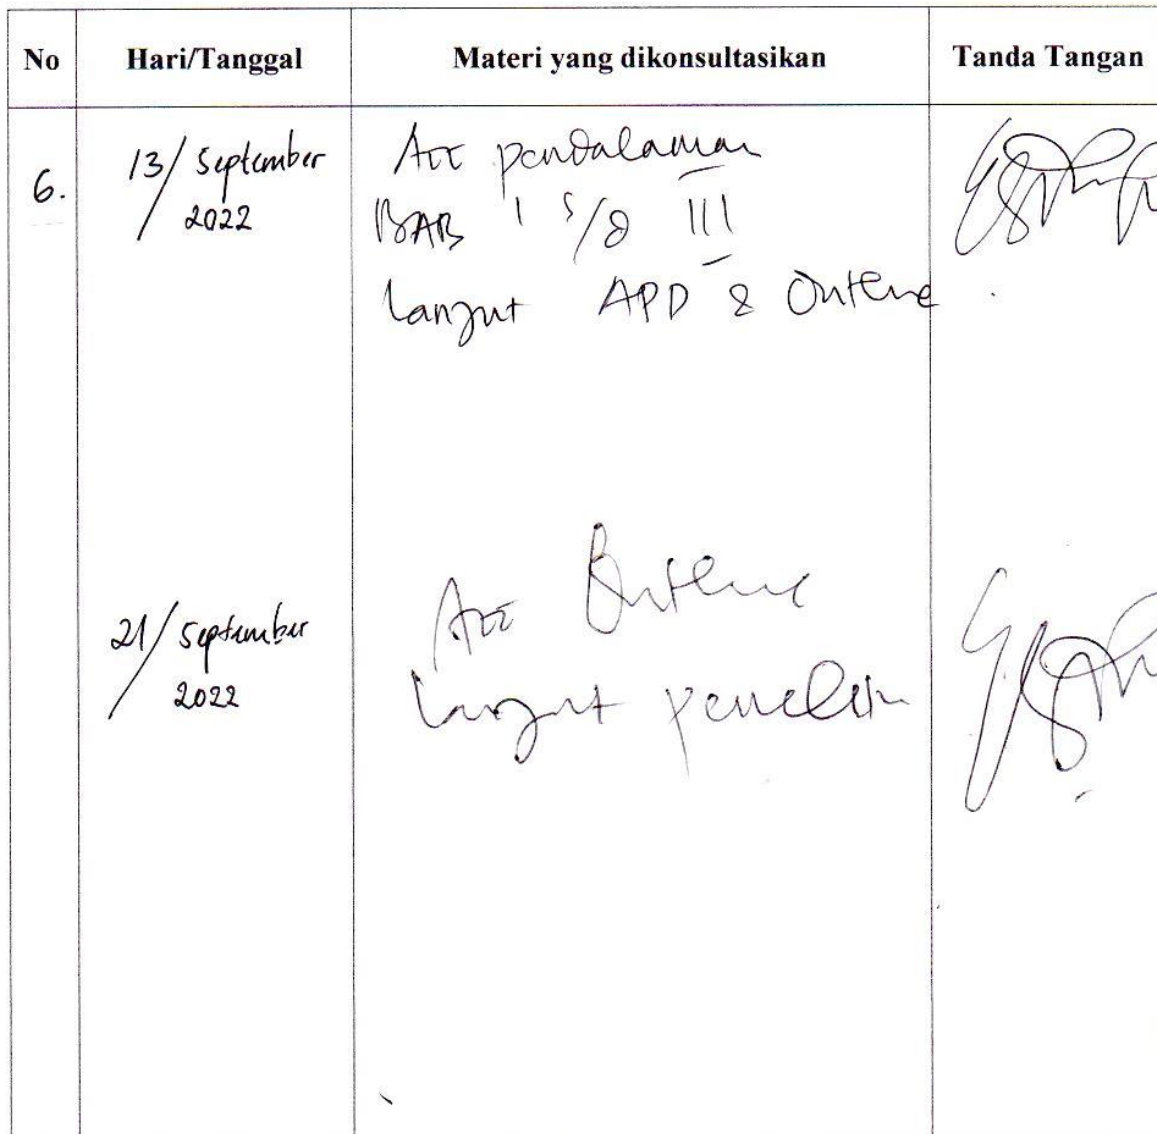 No Hari/Tanggal Materi yang dikonsultasikan Tanda Tangan
6. 13/ September Acc pendalaman
2022 BAB I s/d III
Lanjut APD & Outline
21/ September Acc Outline
2022 Lanjut penelitin